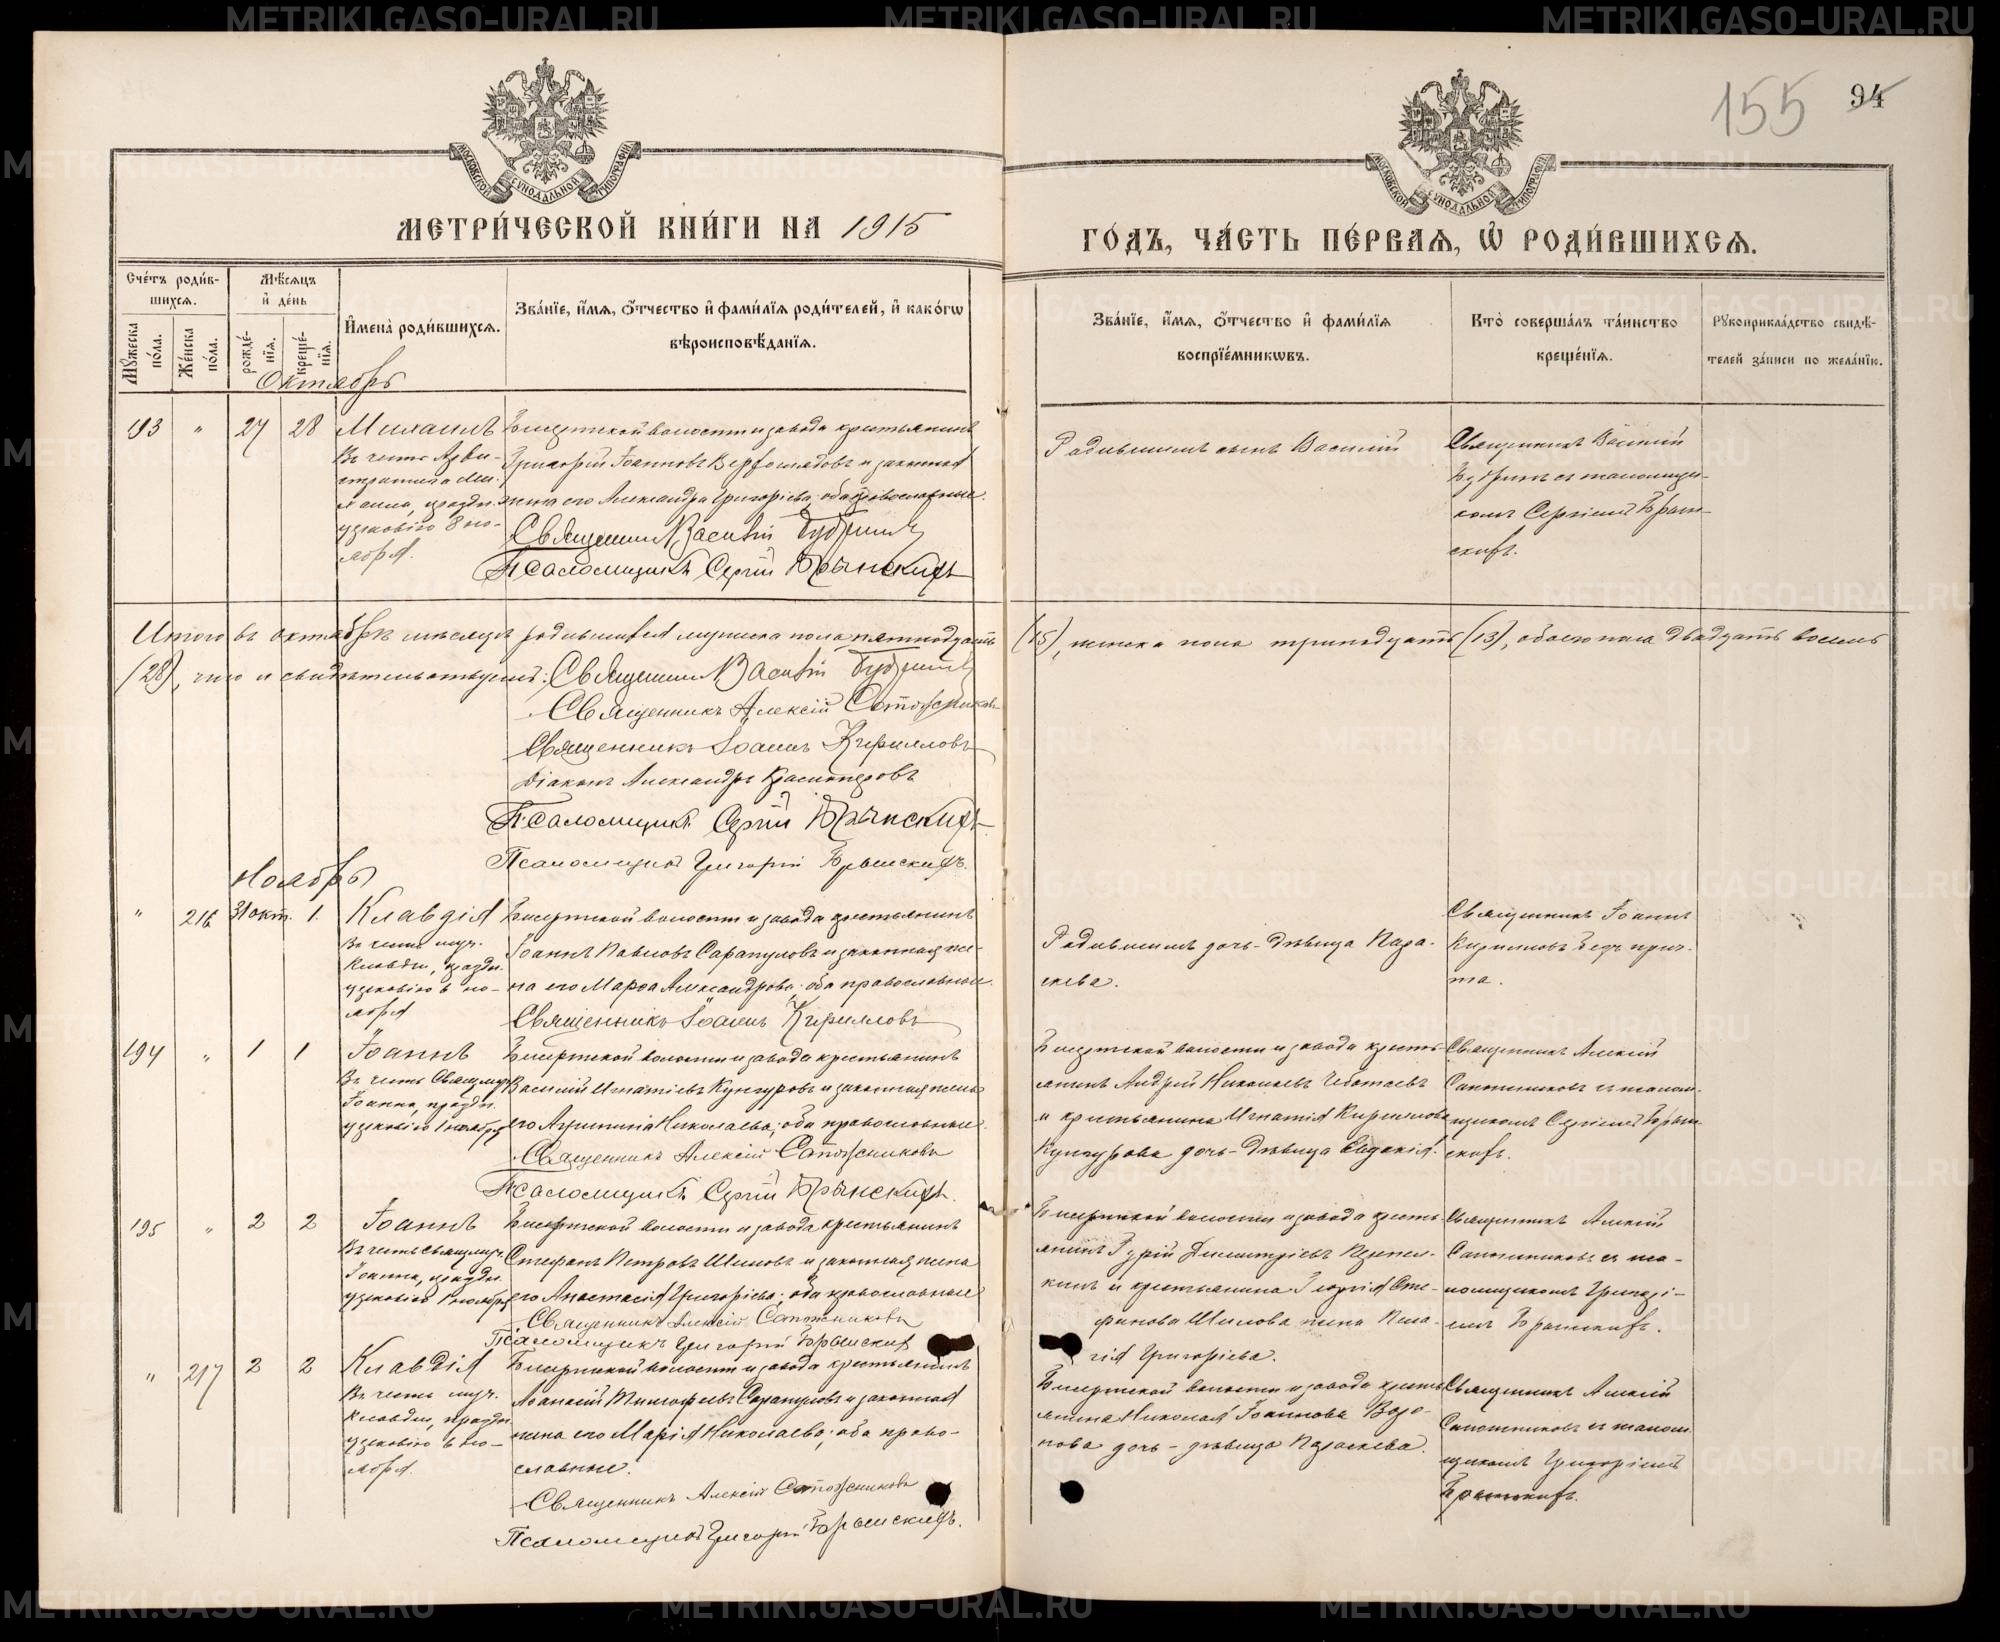 155 94
МОСКОВСКОЙ СѴНОДАЛЬНОЙ ТИПОГРАФІИ
МОСКОВСКОЙ СѴНОДАЛЬНОЙ ТИПОГРАФІИ
МЕТРИ́ЧЕСКОЙ КНИ́ГИ НА 1915
ГО́ДЪ, ЧА́СТЬ ПЕ́РВАѦ, Ѡ РОДИ́ВШИХСѦ.
Сче́тъ роди́в-
шихсѧ.
Мꙋ́жеска по́ла.
Же́нска по́ла.
Мѣ́сѧцъ
и҆ де́нь
рожде́-нїѧ.
креще́-нїѧ.
И҆мена̀ роди́вшихсѧ.
Зва́нїе, и҆́мѧ, ѻ҆́тчество и҆ фами́лїѧ роди́телей, и҆ како́гѡ
вѣроисповѣ́данїѧ.
Зва́нїе, и҆́мѧ, ѻ҆́тчество и҆ фами́лїѧ
воспрїе́мникѡвъ.
Кто̀ соверша́лъ та́инство
креще́нїѧ.
Рꙋкоприкла́дство свидѣ́-
телей за́писи по жела́нїю.
Октябрь
193 " 27 28 Михаилъ
Въ честь Архи-
стратига Ми-
хаила, праздн.
уемаго 8 но-
ября.
Бисертской волости и завода крестьянинъ
Григорій Іоанновъ и законная
жена его Александра Григорьева; оба православные.
Священникъ Василій Будринъ
Псаломщикъ Сергій Брынскихъ
Родившаго сынъ Василій
Священникъ Василій
Будринъ съ псаломщи-
комъ Сергіемъ Брын-
скихъ.
Итого въ октябрѣ мѣсяцѣ родившихся мужска пола пятнадцать (15), женска пола тринадцать (13), обоего пола двадцать восемь
(28), что и свидѣтельствуемъ: Священникъ Василій Будринъ
Священникъ Алексій Сапожниковъ
Священникъ Іоаннъ Кирилловъ
Діаконъ Александръ Красноперовъ
Псаломщикъ Сергій Брынскихъ
Псаломщикъ Григорій Брынскихъ.
Ноябрь
" 216 31 окт. 1 Клавдія
Въ честь муч.
Клавдіи, праздн.
6 но-
ября
Бисертской волости и завода крестьянинъ
Іоаннъ Павловъ Сарапуловъ и законная же-
на его Марфа Александрова; оба православные.
Священникъ Іоаннъ Кирилловъ
дочь-дѣвица Пара-
скева.
Священникъ Іоаннъ
Кирилловъ безъ прич-
та.
194 " 1 1 Іоаннъ
Въ честь Священномуч.
Іоанна, праздн.
1 ноября
Бисертской волости и завода крестьянинъ
Василій Игнатіевъ Кунгуровъ и законная жена
его Агриппина Николаева; оба православные
Священникъ Алексій Сапожниковъ
Псаломщикъ Сергій Брынскихъ.
Бисертской волости и завода кресть-
янинъ Андрей Николаевъ Чеботаевъ
и крестьянина Игнатія Кириллова
Кунгурова дочь-дѣвица Евдокія.
Священникъ Алексій
Сапожниковъ съ псалом-
щикомъ Сергіемъ Брын-
скихъ.
195 " 2 2 Іоаннъ
Въ честь Священномуч.
Іоанна, праздн.
1 ноября
Бисертской волости и завода крестьянинъ
Стефанъ Петровъ Шиловъ и законная жена
его Анастасія Григорьева; оба православные
Священникъ Алексій Сапожниковъ
Псаломщикъ Григорій Брынскихъ
Бисертской волости и завода кресть-
янинъ Гурій Димитріевъ
и крестьянина Георгія Сте-
фанова Шилова жена Пела-
гія Григорьева.
Священникъ Алексій
Сапожниковъ съ пса-
ломщикомъ Григорі-
емъ Брынскихъ.
" 217 2 2 Клавдія
Въ честь муч.
Клавдіи, праздн.
6 но-
ября.
Бисертской волости и завода крестьянинъ
Аѳанасій Тимофеевъ Сарапуловъ и законная
жена его Марія Николаева; оба право-
славные.
Священникъ Алексій Сапожниковъ
Псаломщикъ Григорій Брынскихъ.
Бисертской волости и завода кресть-
янина Николая Іоаннова
дочь - дѣвица Параскева.
Священникъ Алексій
Сапожниковъ съ псалом-
щикомъ Григоріемъ
Брынскихъ.
METRIKI.GASO-URAL.RU